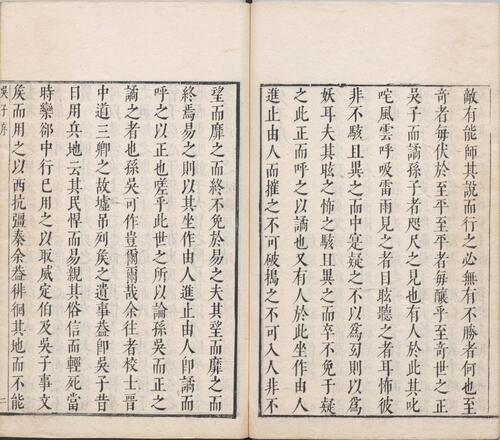 敵有能師其說而行之必無有不勝者何也至
竒者每伏於至平至平者每釀乎至竒世之正
吳子而譎孫子者咫尺之見也有人於此其叱
咤風雲呼吸雷雨見之者目眩聽之者耳怖彼
非不駭且異之而中寔疑之不以爲幻則以爲
妖耳夫其眩之怖之駭且異之而卒不免于疑
之此正而呼之以譎也又有人於此坐作由人
進止由人而摧之不可破搗之不可入人非不
望而靡之而終不免於易之夫其望而靡之而
終焉易之則以其坐作由人進止由人卽譎而
呼之以正也嗟乎此世之所以論孫吳而正之
譎之者也孫吳可作豈爾爾哉余往者校士晉
中道三卿之故墟弔列矦之遺事葢卽吳子昔
日用兵地云其民悍而易親其俗信而輕死當
時欒郤中行巳用之以取威定伯及吳子事文
矦而用之以西抗彊秦余葢徘徊其地而不能
吳子序 二